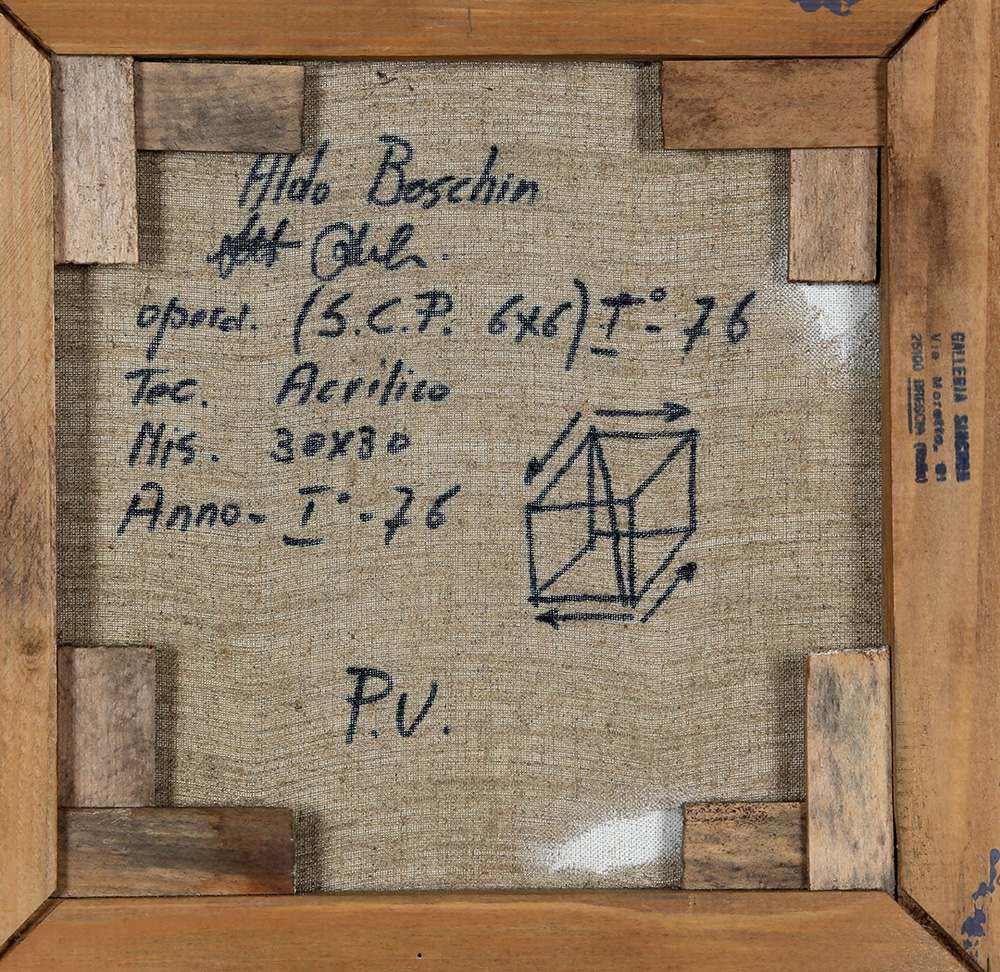 Aldo Boschin
opera. (S.C.P. 6x6) I° - 76
Tec. Acrilico
Mis. 30x30
Anno - I° - 76
P.V.
GALLERIA SINCRON
Via Moretto,
25100 BRESCIA (Italia)